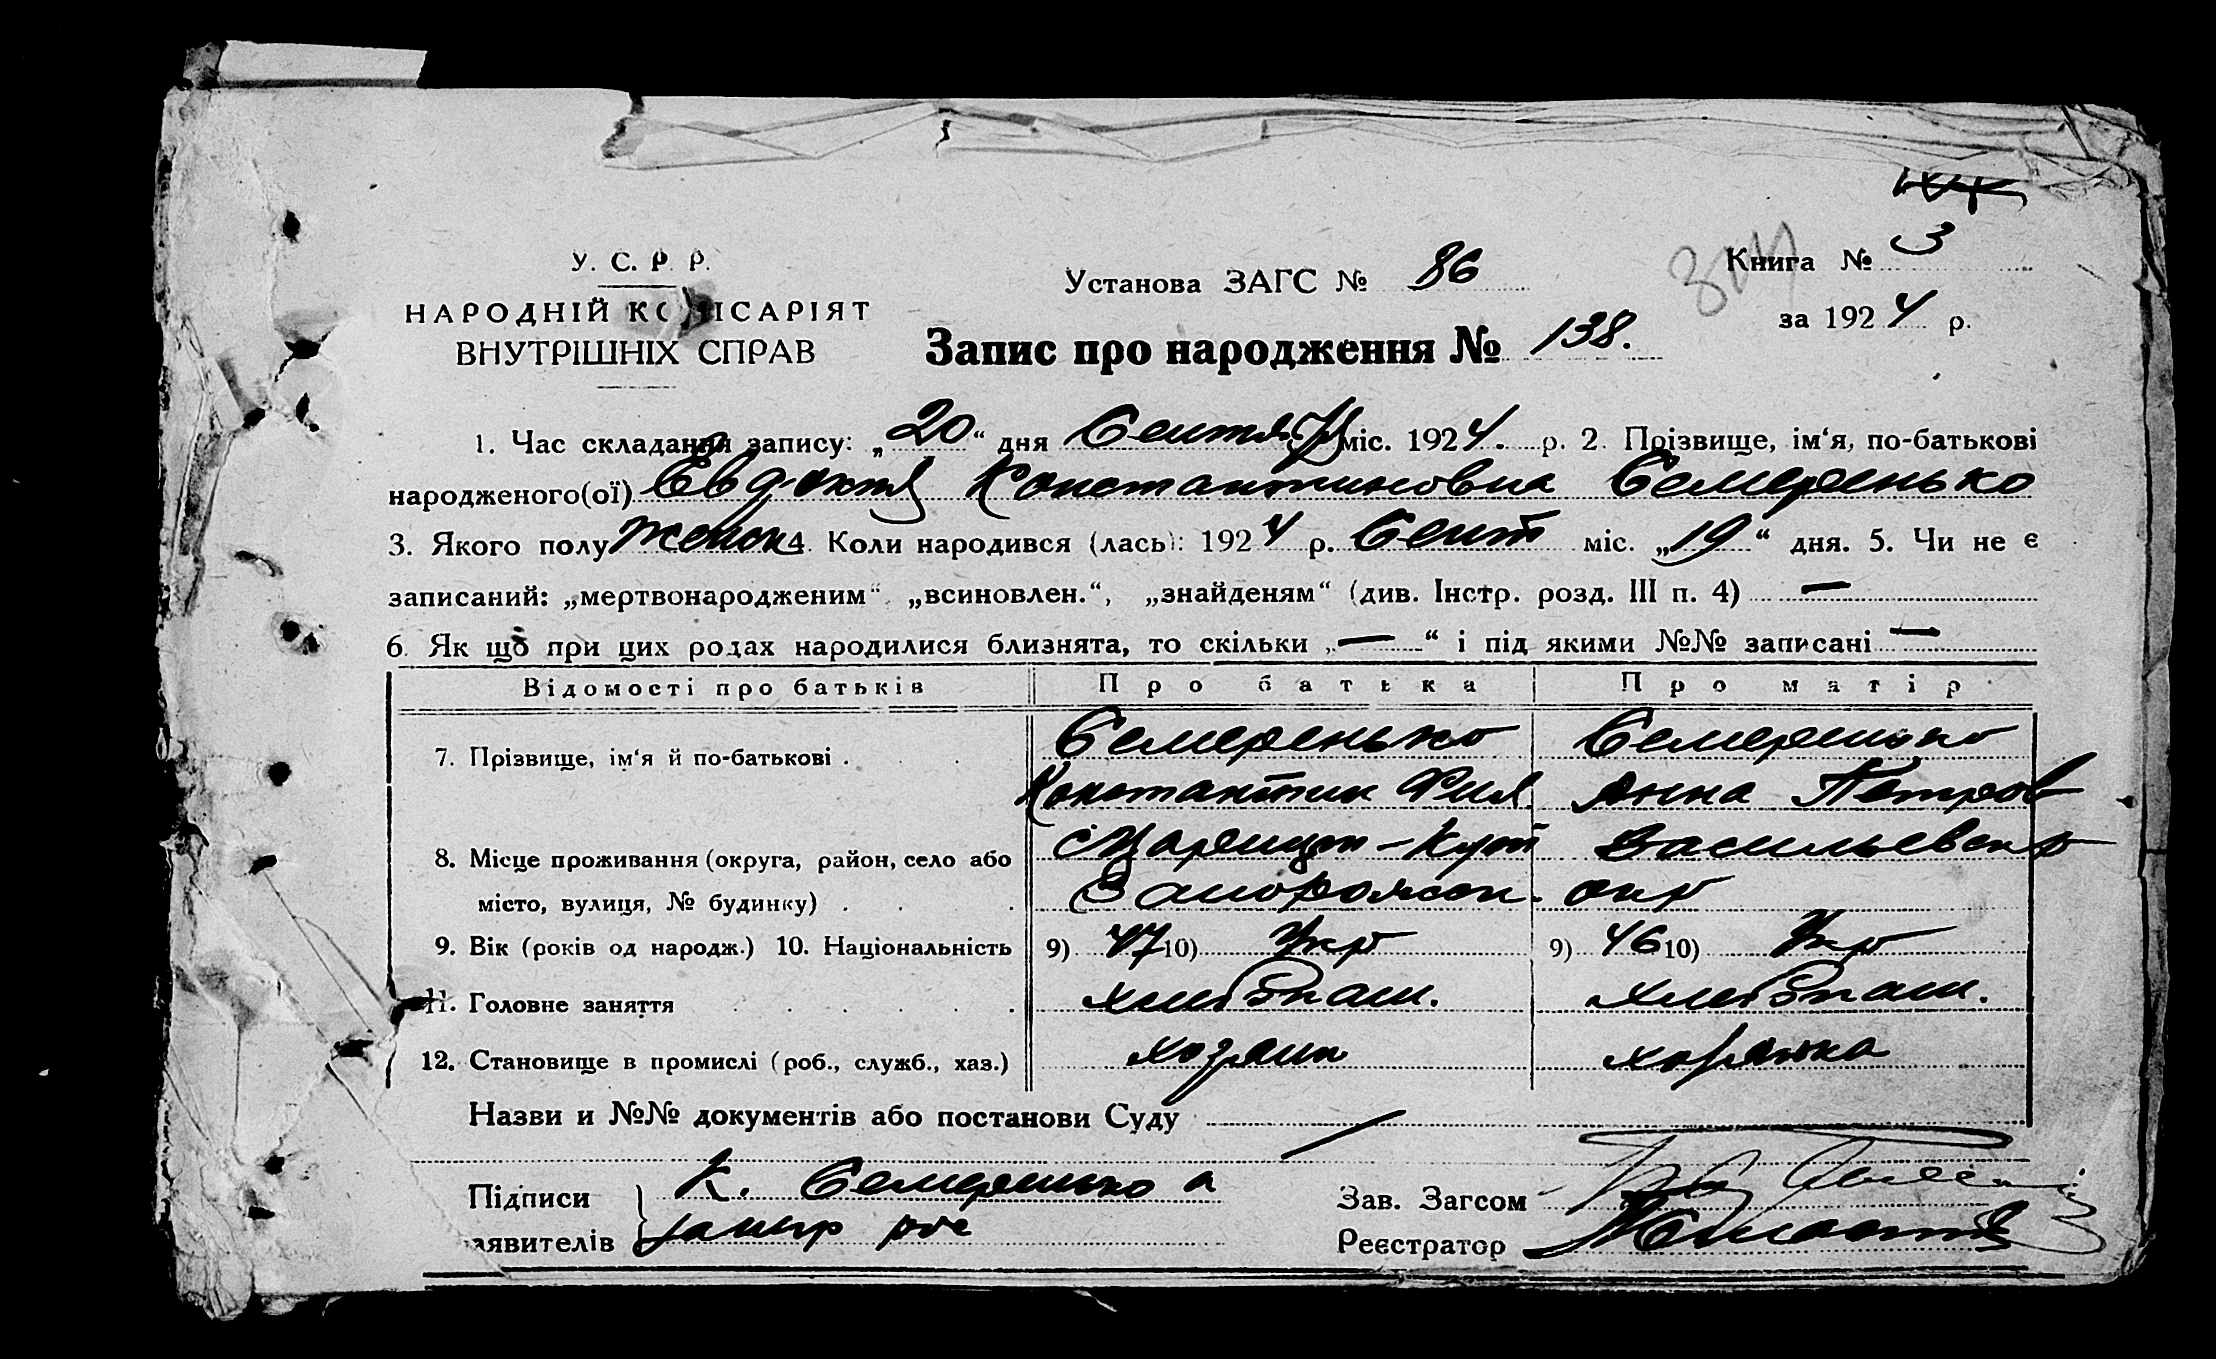 У. С. Р. Р.
НАРОДНІЙ КОМІСАРІЯТ
ВНУТРІШНІХ СПРАВ
Установа ЗАГС № 86
Книга № 3
за 1924 р.
Запис про народження № 138.
1. Час складання запису: „20“ дня Сентяб міс. 1924. р. 2. Прізвище, ім‘я, по-батькові
народженого(ої) Евдокия Константиновна Семеренько
3. Якого полу женск 4. Коли народився (лась): 1924 р. Сент міс. „19“ дня. 5. Чи не є
записаний: „мертвонародженим“, „всиновлен.“, „знайденям“ (див. Інстр. розд. III п. 4) —
6. Як що при цих родах народилися близнята, то скільки „—“ і під якими №№ записані —
Відомості про батьків Про батька Про матір
7. Прізвище, ім‘я й по-батькові . Семеренько Семеренько
Константин Фил. Анна Петров
8. Місце проживання (округа, район, село або с Царицын-Кут Васильевск р
місто, вулиця, № будинку) . Запорожск. окр
9. Вік (років од народж.) 10. Національність 9) 47 10) Укр 9) 46 10) Укр
11. Головне заняття хлебпаш. хлебпаш.
12. Становище в промислі (роб., служб., хаз.) хозяин хозяйка
Назви и №№ документів або постанови Суду
Підписи К. Семеренько а
Зав. Загсом
заявителів
Реєстратор